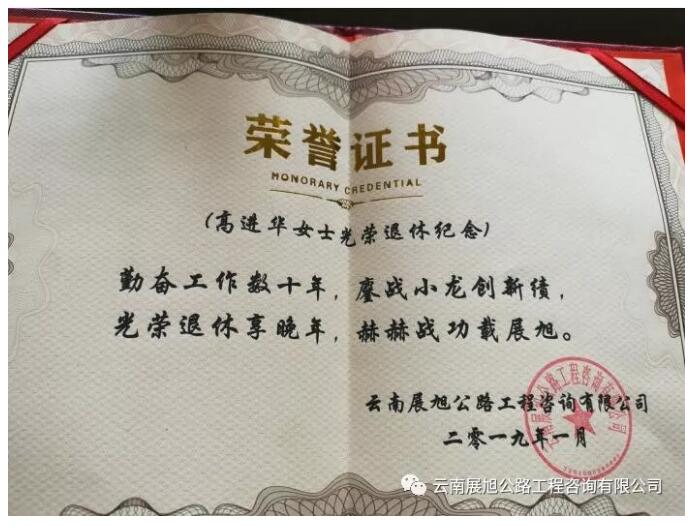 荣誉证书
HONORARY CREDENTIAL
(高进华女士光荣退休纪念)
勤奋工作数十年，鏖战小龙创新绩，
光荣退休享晚年，赫赫战功载展旭。
云南展旭公路工程咨询有限公司
二零一九年一月
云南展旭公路工程咨询有限公司
云南展旭公路工程咨询有限公司